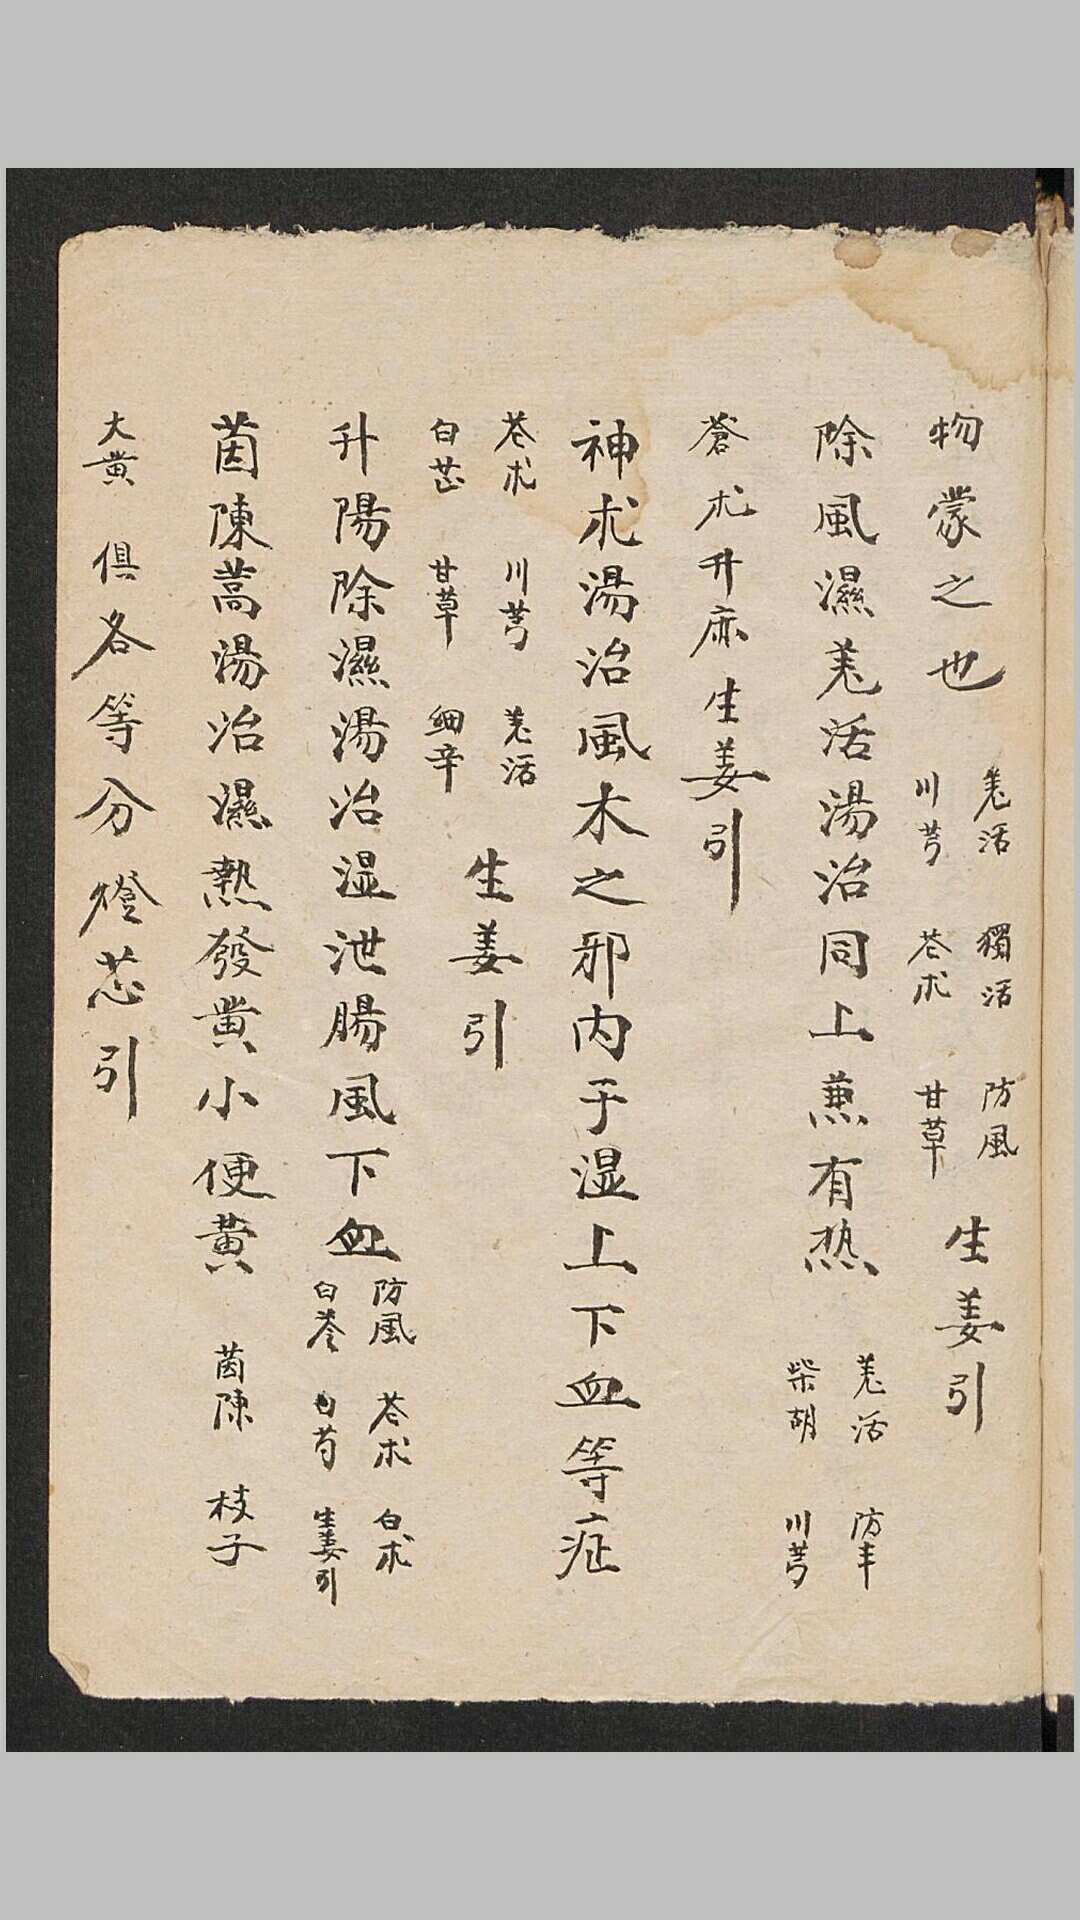 物蒙之也 羗活 獨活 防風 川芎 苍术 甘草 生姜引
除風濕羗活湯治同上兼有热 羗活 防丰 柴胡 川芎
蒼术升麻生姜引
神术湯治風木之邪内于湿上下血等症
苍术 川芎 羗活 白芷 甘草 细辛 生姜引
升陽除濕湯治湿泄腸風下血 防風 苍术 白术 白苓 白芍 生姜引
茵陳蒿湯治濕熱發黄小便黄 茵陳 枝子
大黄 俱各等分燈芯引